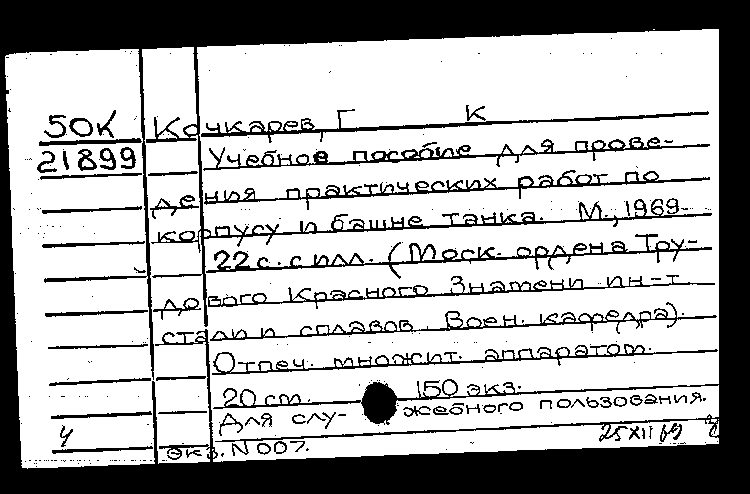 50К Кочкарев, Г К
21899 Учебное пособие для прове-
дения практических работ по
корпусу и башне танка. М., 1969.
22 с. с илл. (Моск. ордена Тру-
дового Красного Знамени ин-т
стали и сплавов. Воен. кафедра).
Отпеч. множит. аппаратом.
20 см. 150 экз.
Для слу- жебного пользования.
4 25 XII 69
Экз. N 007.